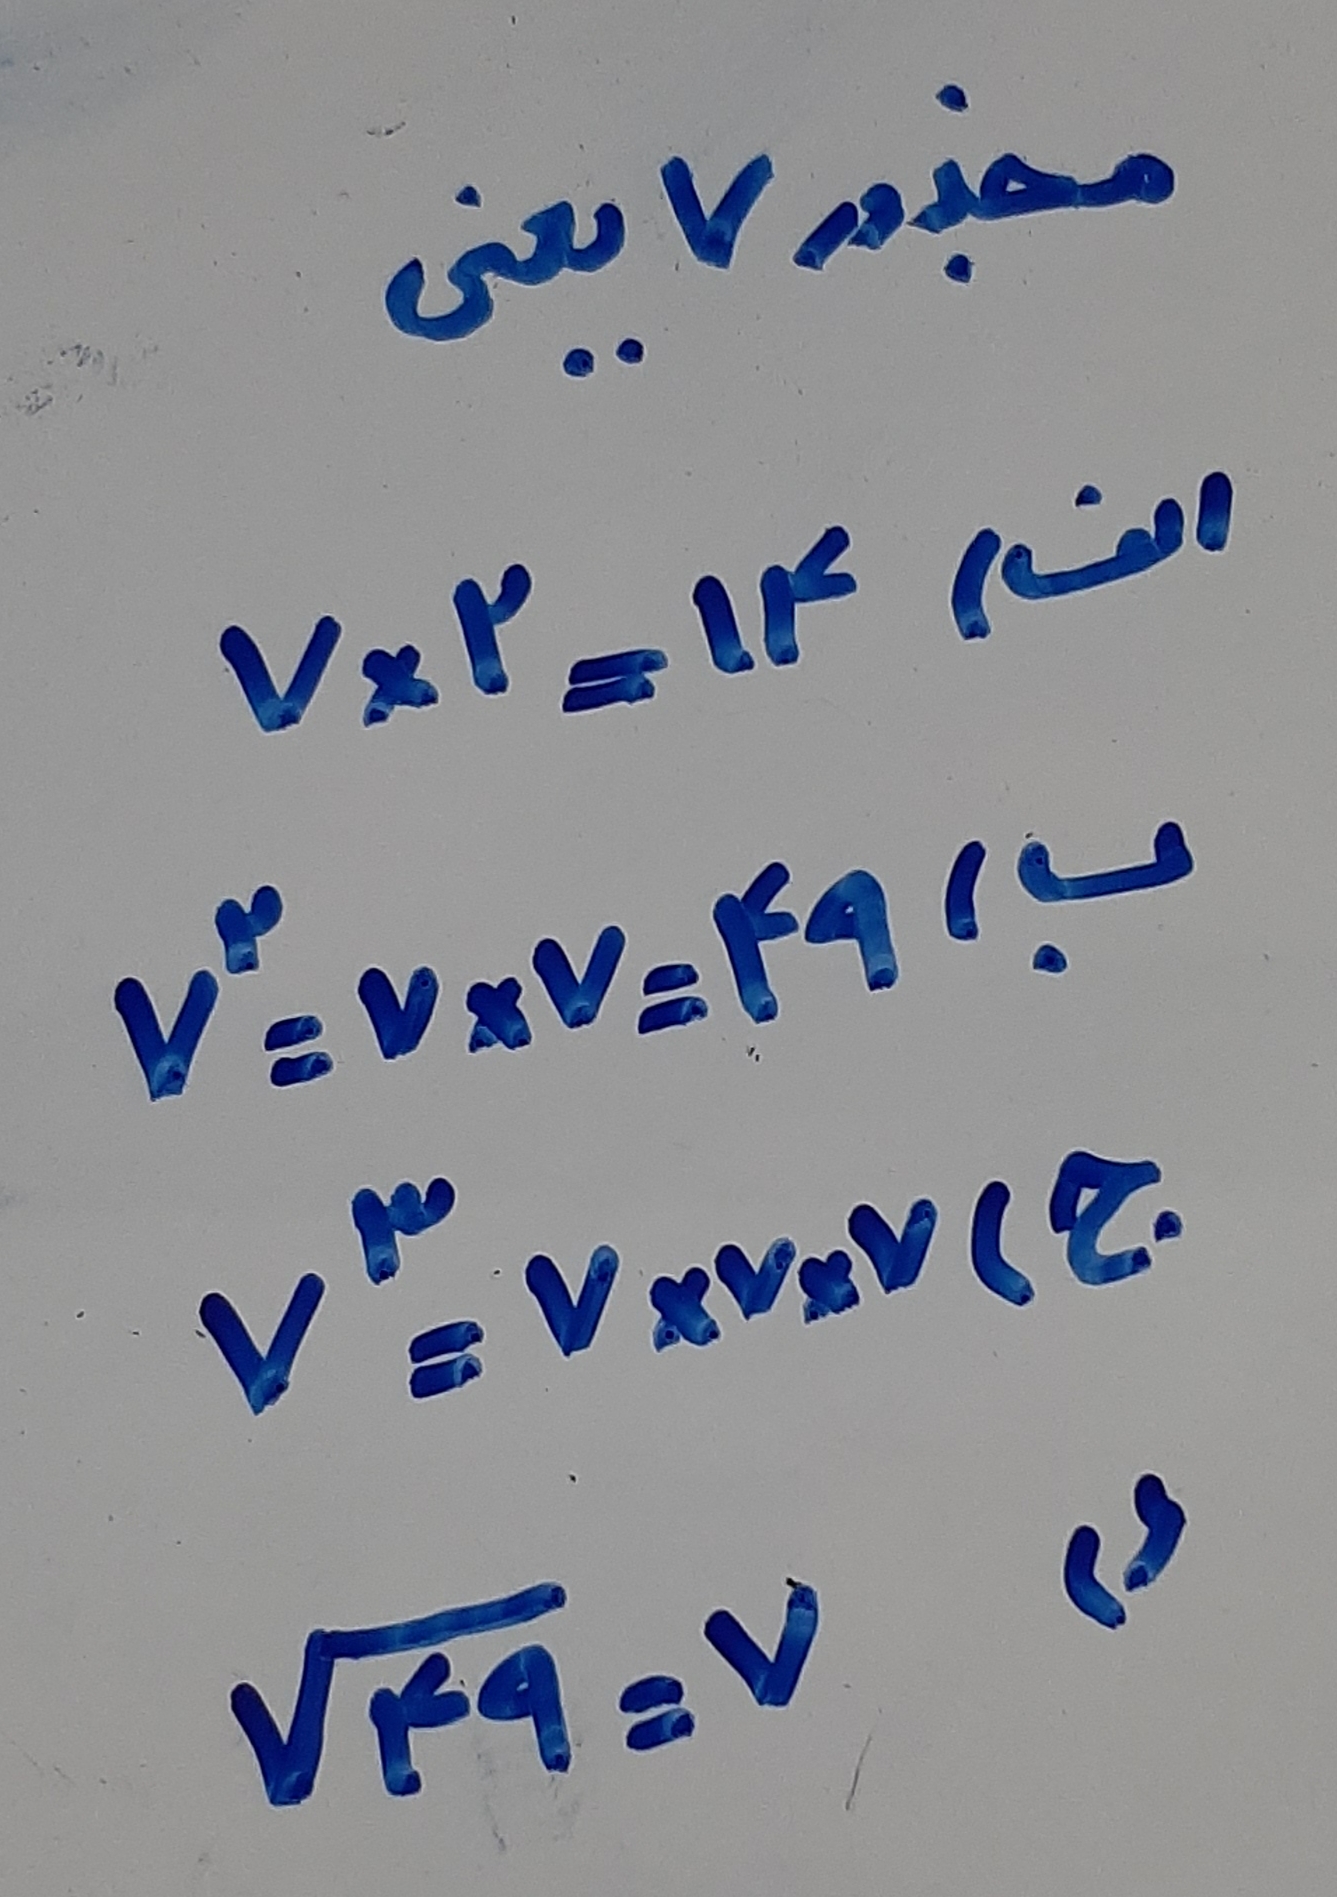 مجذور ۷ یعنی
الف) ۷×۲=۱۴
ب) ۷^۲=۷×۷=۴۹
ج) ۷^۳=۷×۷×۷
د) √۴۹=۷